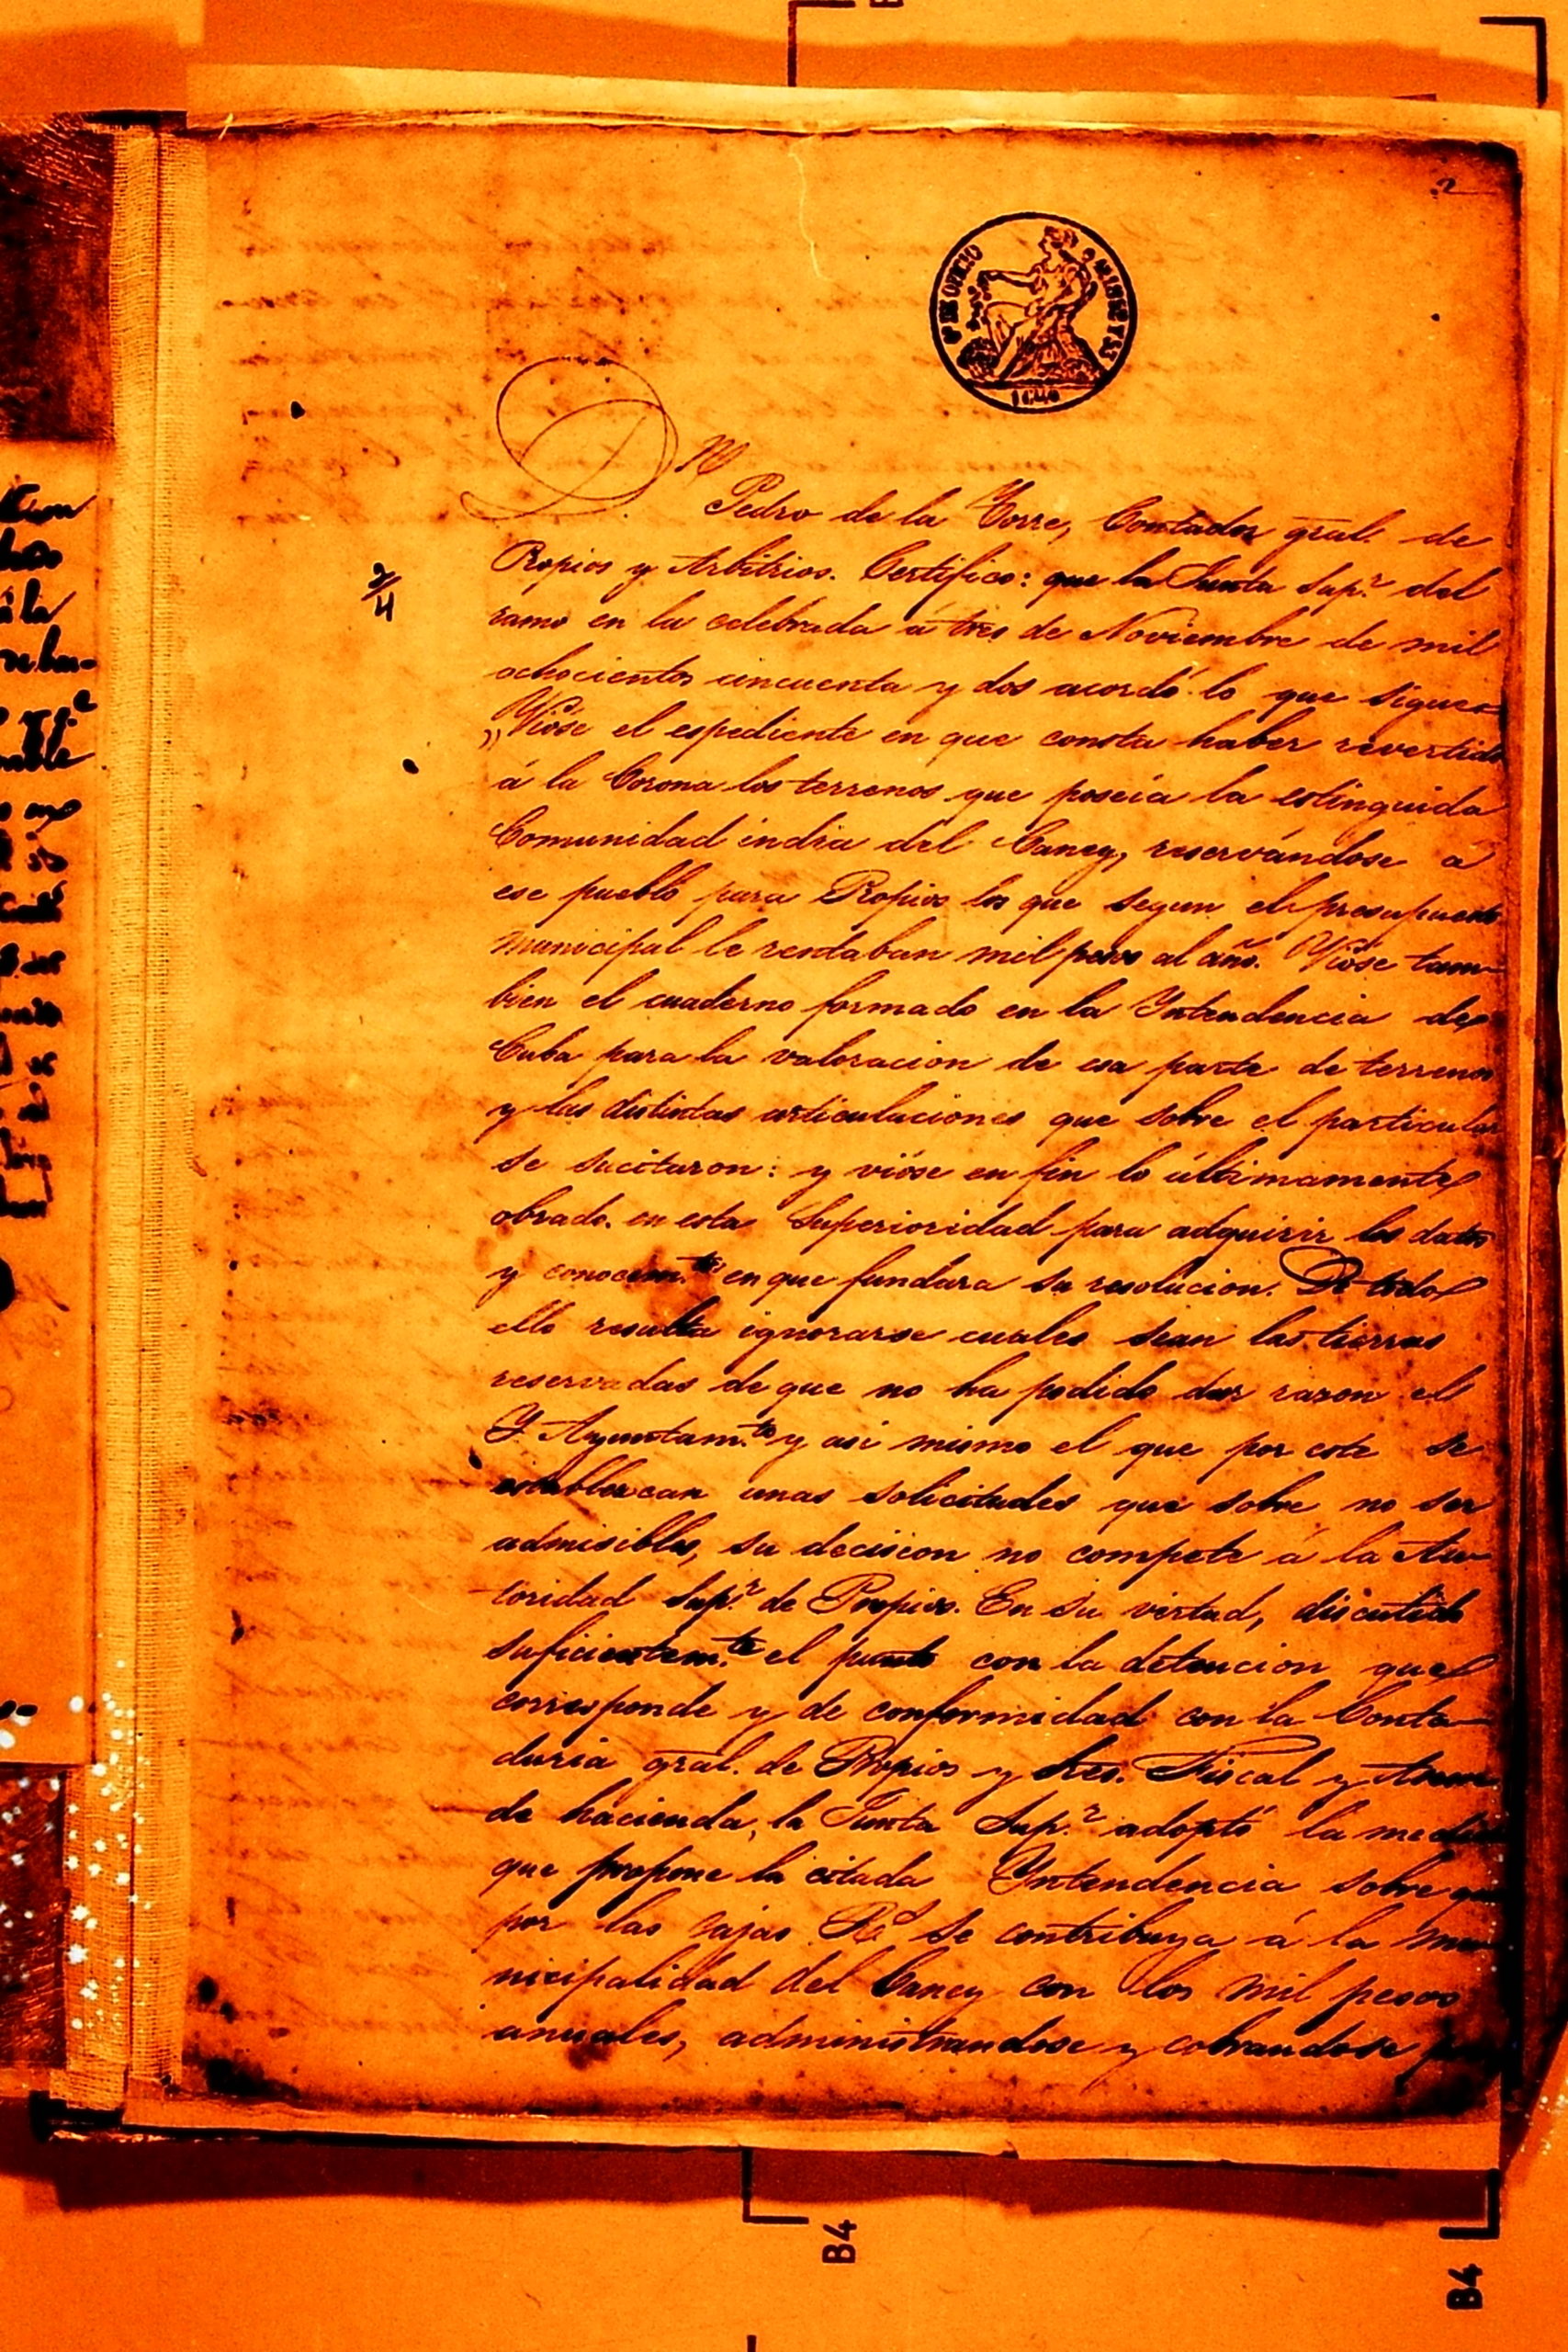 2
4º DE OFICIO
Dn
Pedro de la Torre, Contador gral. de
2/4
Propios y Arbitrios. Certifico: que la Junta Sup.r del
ramo en la celebrada á tres de Noviembre de mil
ochocientos cincuenta y dos acordó lo que sigue
„Vióse el espediente en que consta haber revertido
á la Corona los terrenos que poseía la estinguida
Comunidad india del Caney, reservándose a
ese pueblo para Propios los que segun el presupuesto
municipal le rentaban mil pesos al año. Vióse tam-
bien el cuaderno formado en la Intendencia de
Cuba para la valoracion de esa parte de terrenos
y las distintas articulaciones que sobre el particular
se sucitaron: y vióse en fin lo últimamente
obrado en esta Superioridad para adquirir los datos
y conocim.tos en que fundara su resolucion. De todo
ello resulta ignorarse cuales sean las tierras
reservadas de que no ha podido dar razon el
Y. Ayuntam.to y asi mismo el que por este se
establezcan unas solicitudes que sobre no ser
admisibles, su decision no compete á la Au-
toridad Sup.r de Propios. En su virtud, discutido
suficientem.te el punto con la detencion que
corresponde y de conformidad con la Conta-
duria gral. de Propios y Sres. Fiscal y
de hacienda, la Junta Sup.r adoptó la medida
que propone la citada Yntendencia sobre que
por las cajas R.s se contribuya á la mu-
nicipalidad del Caney con los mil pesos
anuales, administrandose y cobrandose
B4
B4